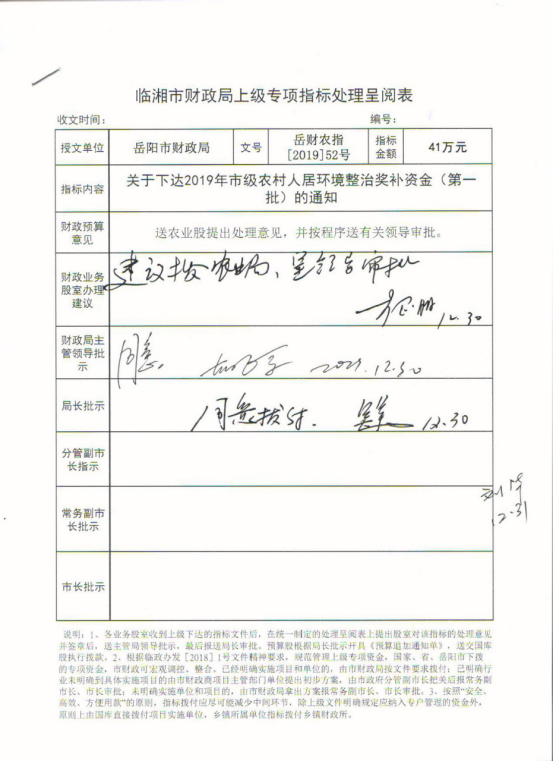 临湘市财政局上级专项指标处理呈阅表
收文时间: 编号:
授文单位 岳阳市财政局 文号 岳财农指[2019]52号 指标金额 41万元
指标内容 关于下达2019年市级农村人居环境整治奖补资金（第一
批）的通知
财政预算
意见 送农业股提出处理意见，并按程序送有关领导审批。
财政业务
股室办理
建议
建议拨农业局、呈领导审批
12.30
财政局主
管领导批
示
同意 12.30
局长批示 同意拨付. 12.30
分管副市
长指示
12.31
常务副市
长批示
市长批示
说明：1、各业务股室收到上级下达的指标文件后，在统一制定的处理呈阅表上提出股室对该指标的处理意见
并签章后，送主管局领导批示，最后报送局长审批。预算股根据局长批示开具《预算追加通知单》，送交国库
股执行拨款。2、根据临政办发【2018】1号文件精神要求，规范管理上级专项资金，国家、省、岳阳市下拨
的专项资金，市财政可宏观调控、整合、已经明确实施项目和单位的，由市财政局按文件要求拨付；已明确行
业未明确到具体实施项目的由市财政商项目主管部门单位提出初步方案，由市政府分管副市长把关后报常务副
市长、市长审批；未明确实施单位和项目的，由市财政局拿出方案报常务副市长、市长审批。3、按照“安全、
高效、方便用款”的原则，指标拨付应尽可能减少中间环节，除上级文件明确规定应纳入专户管理的资金外，
原则上由国库直接拨付项目实施单位，乡镇所属单位指标拨付乡镇财政所。